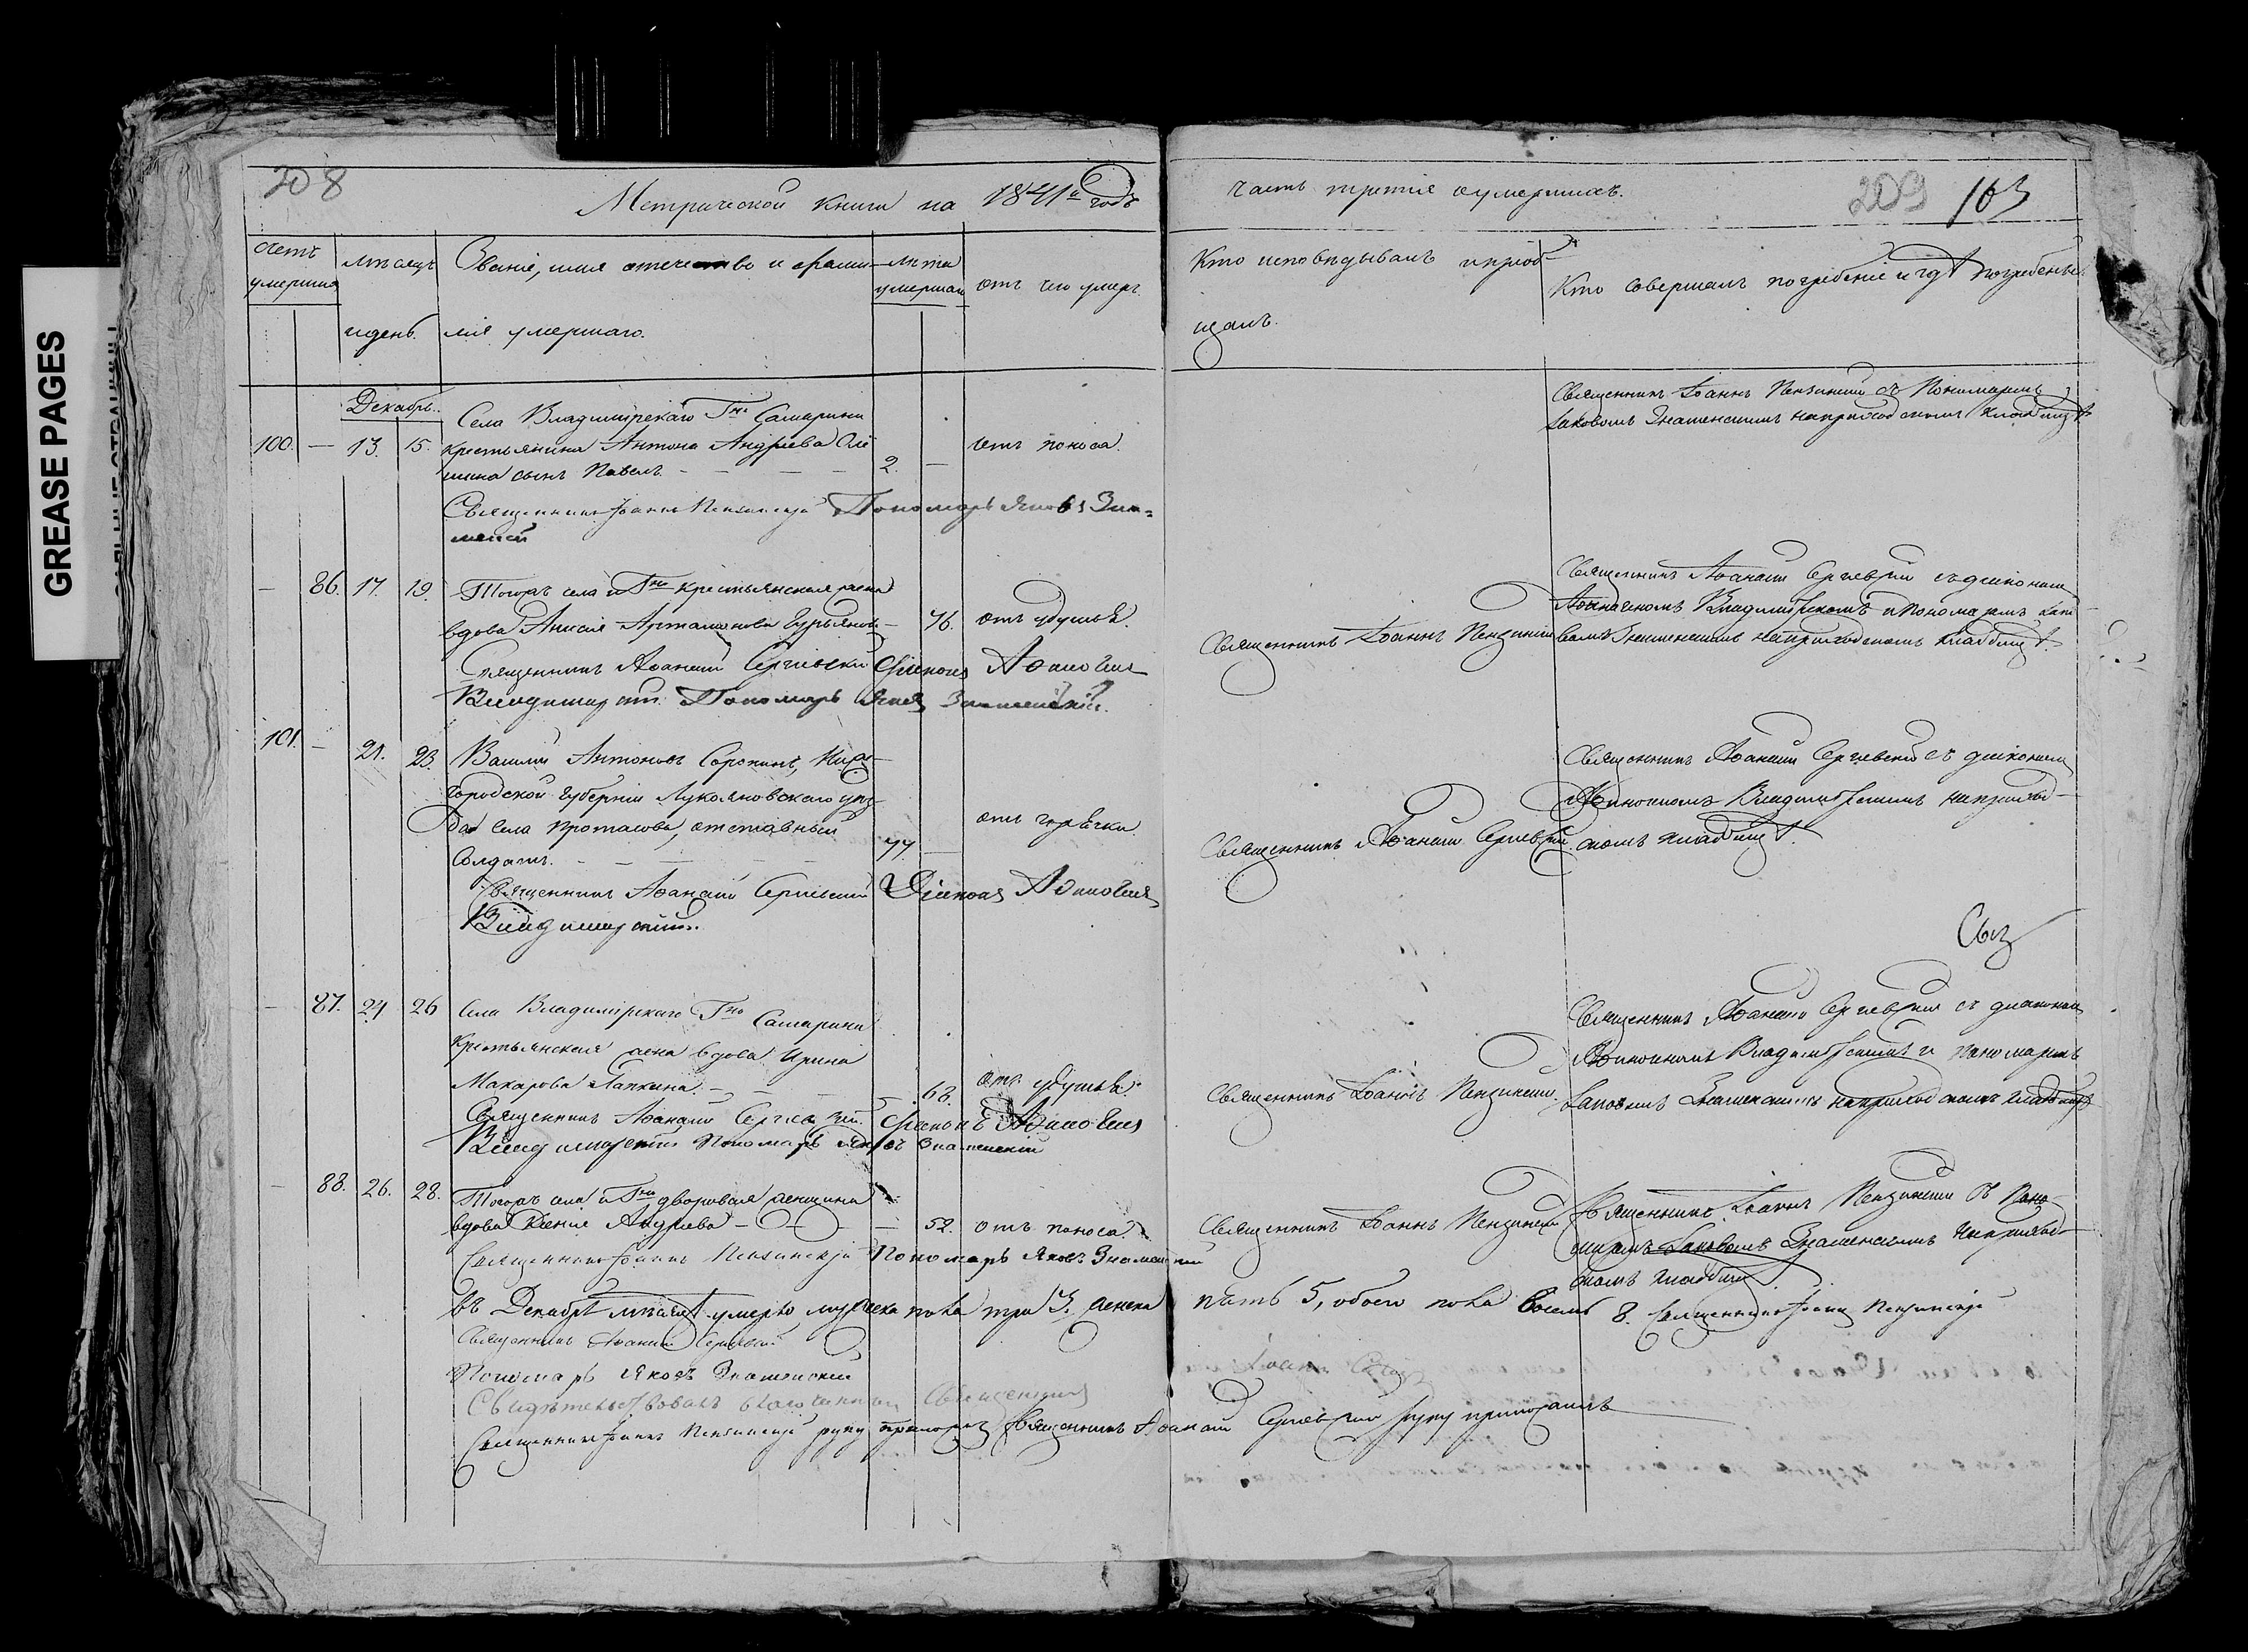 GREASE PAGES
208
Метрической книги на 1841й годъ
часть третія о умершихъ.
209 163
Счетъ умершихъ
Мѣсяцъ и день.
Званіе, имя отечество и фамилія умершаго.
Лѣта умершаго
отъ чего умеръ.
Кто исповѣдывалъ и пріобщалъ.
Кто совершалъ погребеніе и гдѣ погребены
Декабрь.
100. — 13. 15.
Села Владимірскаго Гна Самарина
крестьянина Антона Андреева
сынъ Павелъ. — — — —
2. —
отъ поноса.
Священникъ Іоаннъ Пензинскій съ Пономаремъ
Іаковомъ Знаменскимъ на приходскомъ кладбищѣ
Священникъ Іоаннъ Пензинскій Пономарь Яковъ Зна-
менскій
— 86. 17. 19.
Тогожъ села и Гна крестьянская жена
вдова Анисія Артамонова —
76.
отъ удушья.
Священникъ Іоаннъ Пензинскій
Священникъ Аѳанасій Сергіевскій съ діакономъ
Владимірскимъ и пономаремъ Іако-
вомъ Знаменскимъ на приходскомъ кладбищѣ.
Священникъ Аѳанасій Сергіевскій Діаконъ
Владимірскій Пономарь Яковъ Знаменскій.
101. — 21. 23.
Василій Антоновъ Сорокинъ, Ниже-
городской Губерніи Лукояновскаго уѣз-
да села Протасова, отставный
Солдатъ. — — —
77. —
отъ горячки.
Священникъ Аѳанасій Сергіевскій.
Священникъ Аѳанасій Сергіевскій съ діакономъ
Владимірскимъ на приход-
скомъ кладбищѣ.
Священникъ Аѳанасій Сергіевскій Діаконъ
Владимірскій.
— 87. 24 26
Села Владимірскаго Гна Самарина
крестьянская жена вдова Ирина
Макарова Лапкина. — —
68.
отъ удушья.
Священникъ Іоаннъ Пензинскій.
Священникъ Аѳанасій Сергіевскій съ діакономъ
Владимірскимъ и пономаремъ
Іаковомъ Знаменскимъ на приходскомъ кладбищѣ
Священникъ Аѳанасій Сергіевскій. Діаконъ
Владимірскій Пономарь Яковъ Знаменскій
— 88. 26. 28.
Тогожъ села и Гна дворовая женщина
вдова Ксенія Андреева — — —
52.
отъ поноса.
Священникъ Іоаннъ Пензинскій
Священникъ Іоаннъ Пензинскій съ Поно-
маремъ Іаковомъ Знаменскимъ на приход-
скомъ кладбищѣ.
Священникъ Іоаннъ Пензинскій Пономарь Яковъ Знаменскій
въ Декабрѣ мѣсяцѣ умерло мужеска пола три 3. женска пять 5, обоего пола восемь 8. Священникъ Іоаннъ Пензинскій
Священникъ Аѳанасій Сергіевскій
Пономарь Яковъ Знаменскій
Свидѣтельствовалъ благочинный Священникъ
Священникъ Іоаннъ Пензинскій руку приложилъ Священникъ Аѳанасій Сергіевскій руку приложилъ